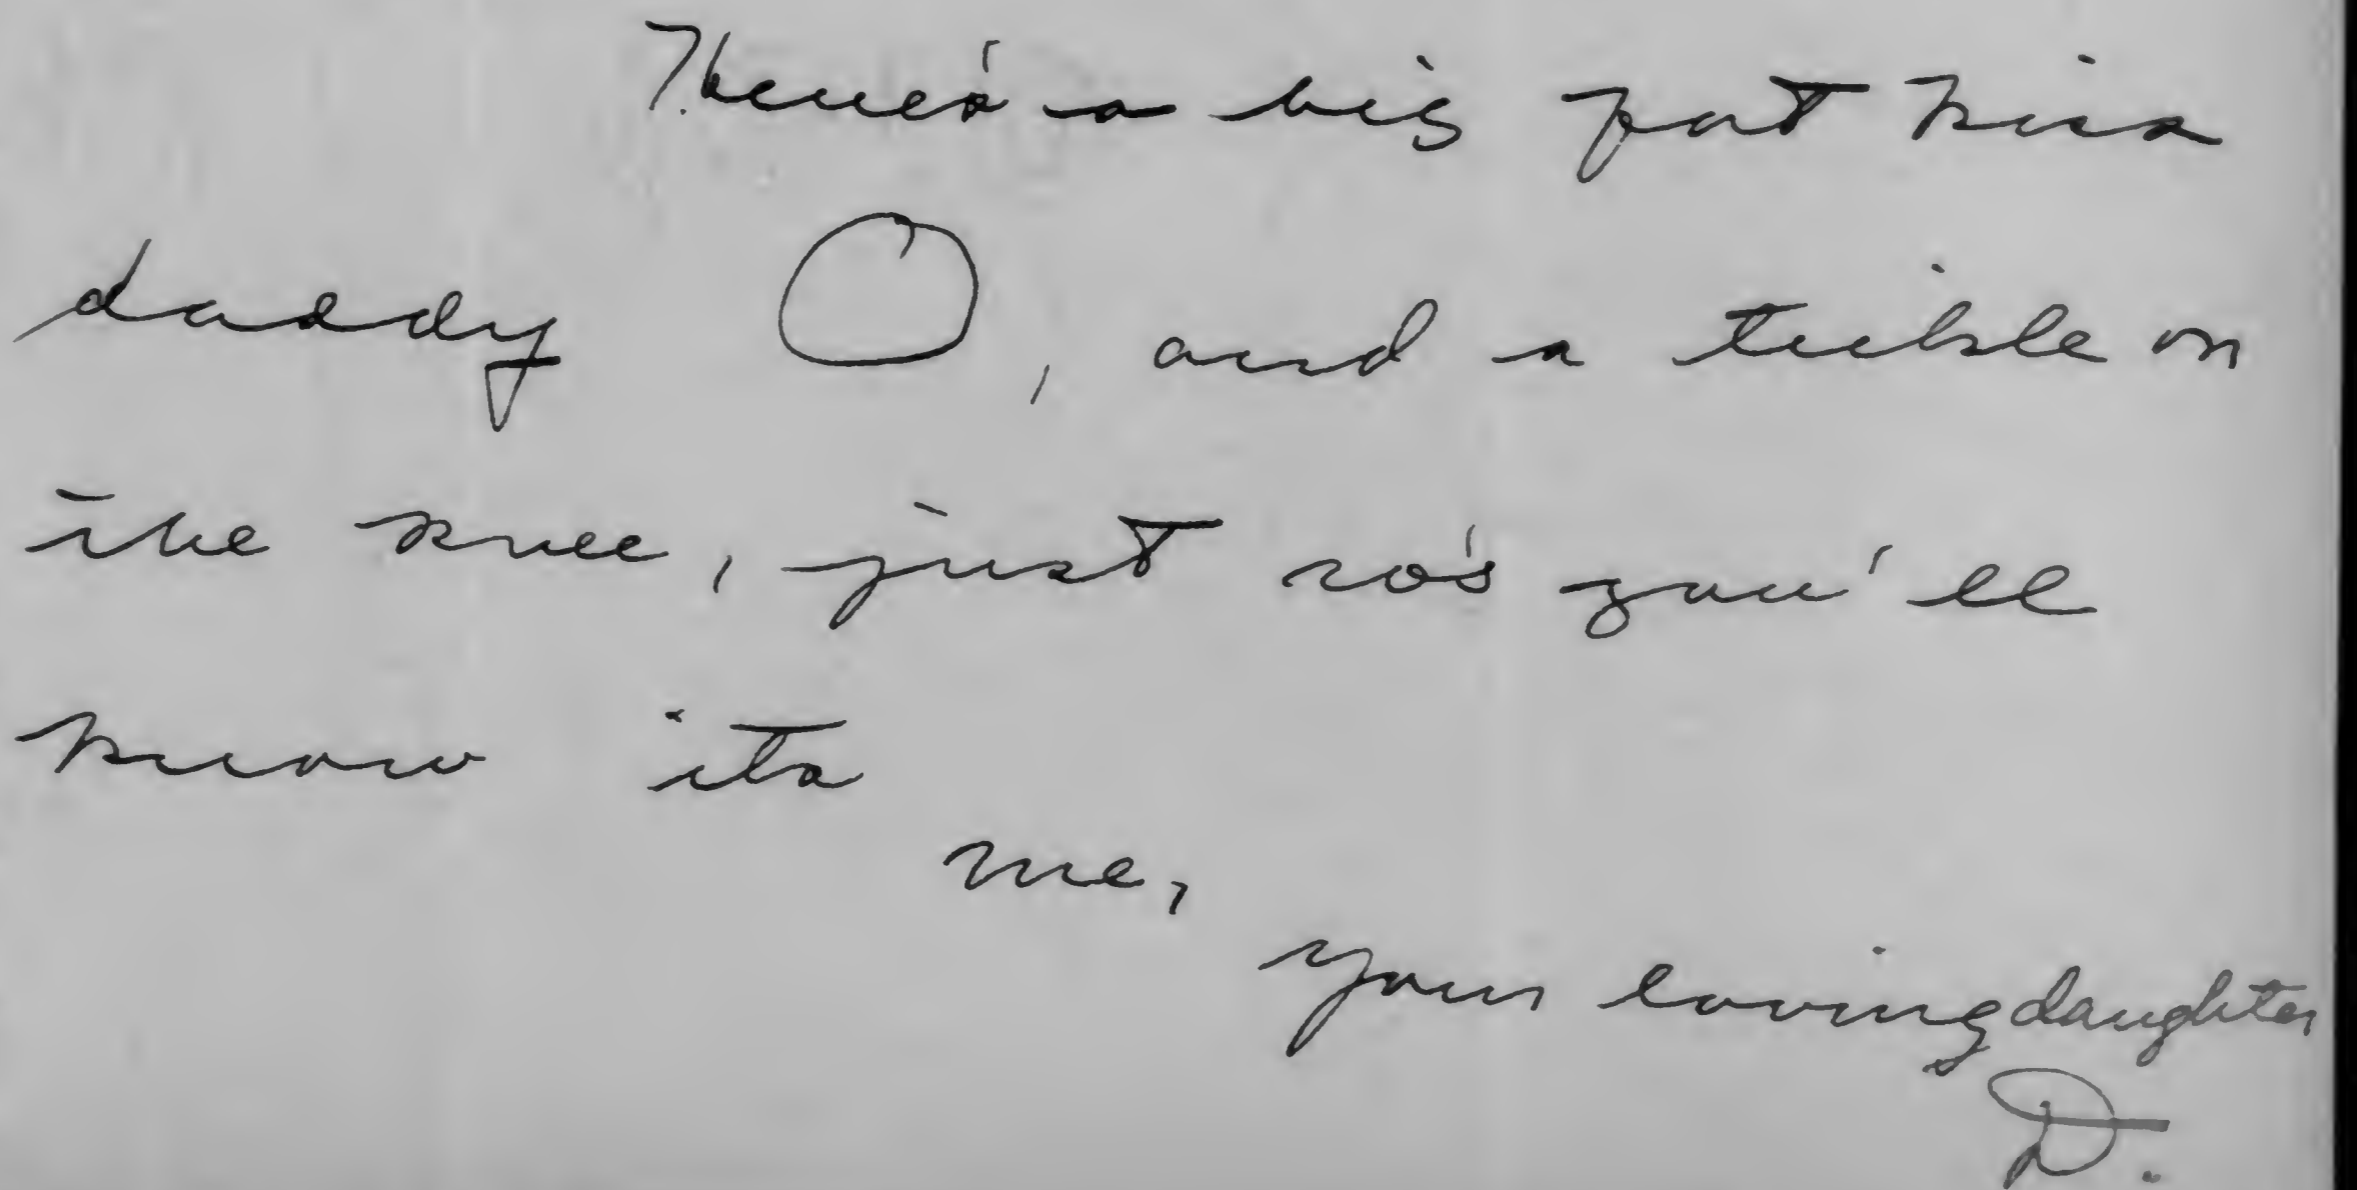 There's a big fat kiss
daddy O, and a tickle on
the knee, just so's you'll
know its
me,
your loving daughter
D.